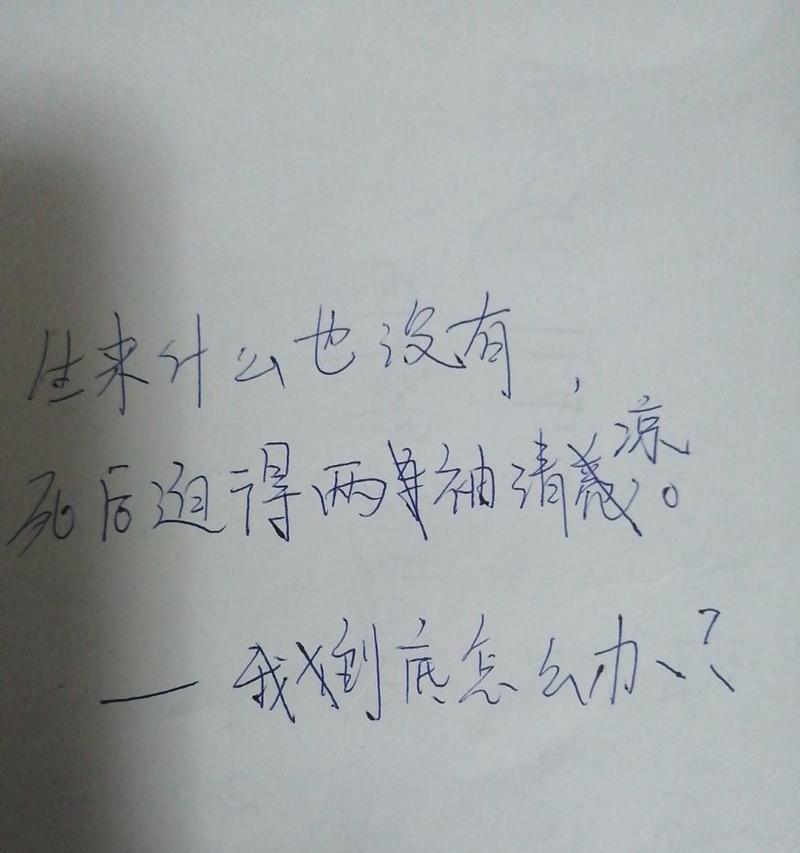 生来什么也没有，
死后迫得两袖清凉。
——我到底怎么办？